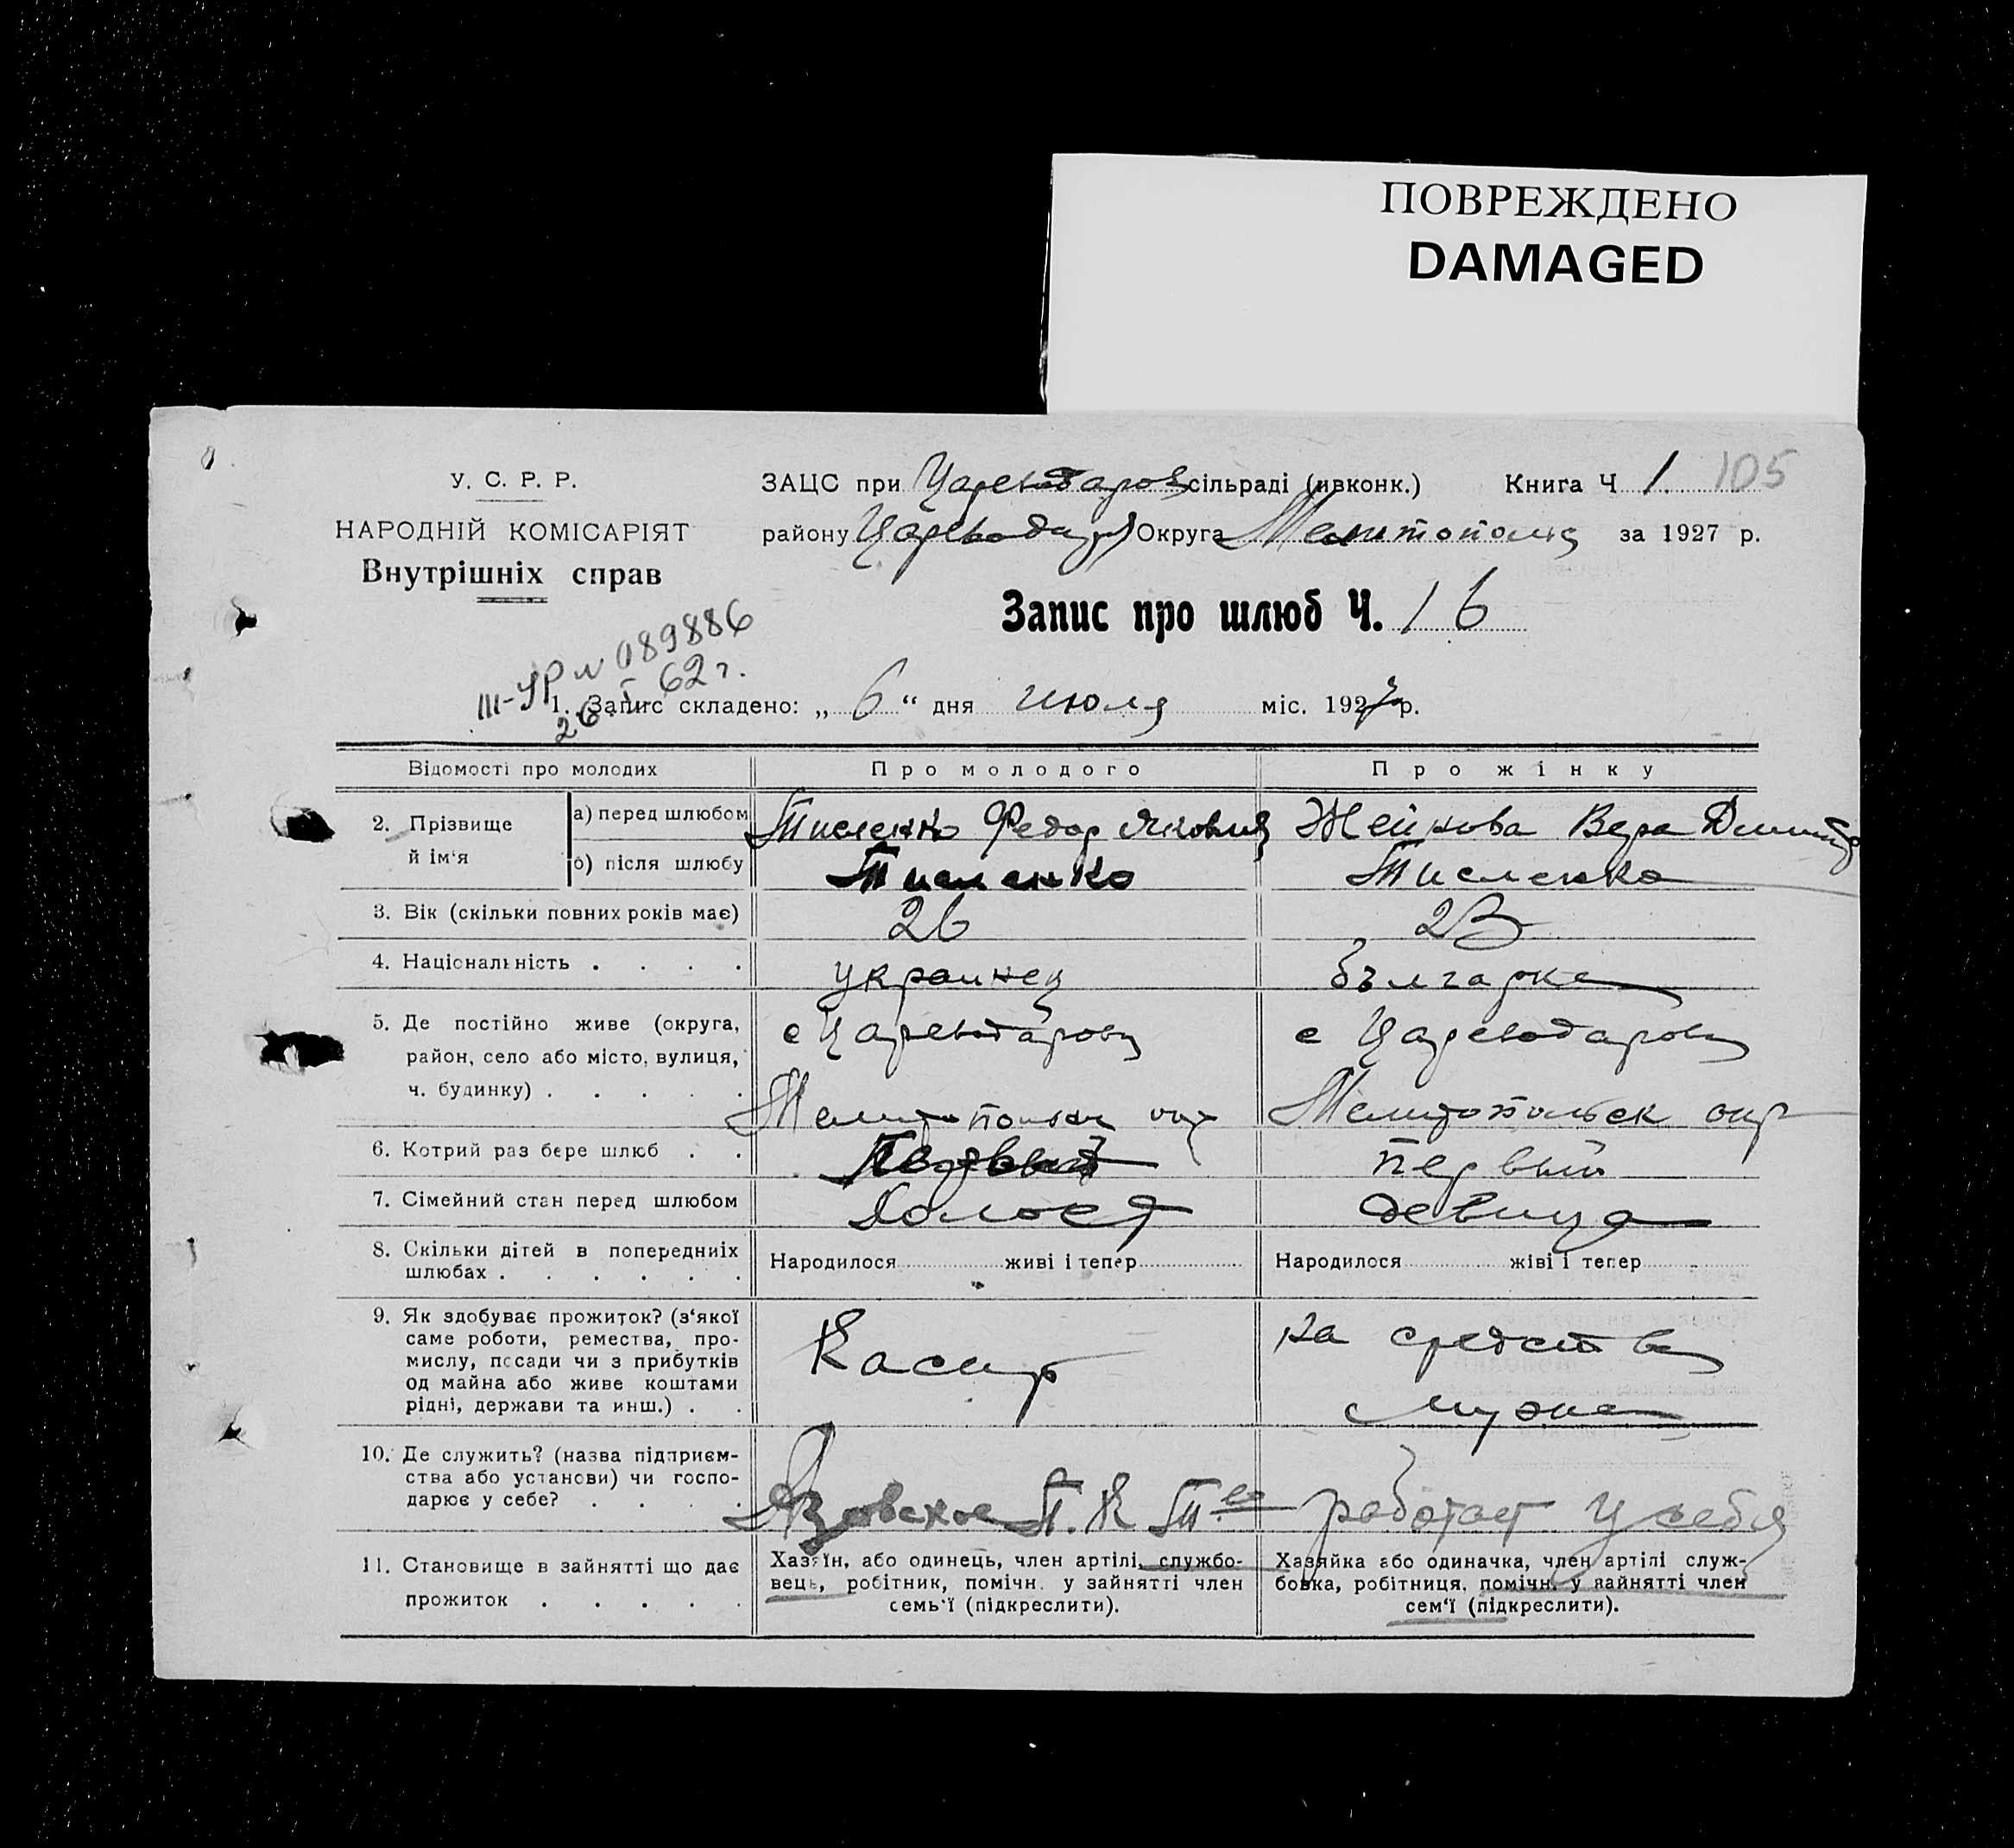 ПОВРЕЖДЕНО
DAMAGED
У. С. Р. Р.
НАРОДНІЙ КОМІСАРІЯТ
Внутрішніх справ
ЗАЦС при Цареводаров сільраді (ивконк.) Книга Ч 1. 105
району Цареводар Округа Мелитополь за 1927 р.
Запис про шлюб Ч. 16
III-УР № 089886
26 I 62 г.
1. Запис складено: „ 6 “ дня июля міс. 1927 р.
Відомості про молодих Про молодого Про жінку
2. Прізвище й ім‘я
а) перед шлюбом Тисленко Федор Яковлев Жейнова Вера Димитр
б) після шлюбу Тисленко Тисленко
3. Вік (скільки повних років має) 26 23
4. Національність . . . . украинец българка
5. Де постійно живе (округа, с Цареводаровц с Цареводаровц
район, село або місто, вулиця,
ч. будинку) . . . . . Мелитопольск окр Мелитопольск окр
6. Котрий раз бере шлюб . . Первый первый
7. Сімейний стан перед шлюбом Холост девица
8. Скільки дітей в попередніх
шлюбах . . . . . .
Народилося живі і тепер Народилося жіві і тепер
9. Як здобуває прожиток? (з‘якої
саме роботи, ремества, про-
мислу, посади чи з прибутків
од майна або живе коштами
рідні, держави та инш.) . .
Касир
на средства
мужа
10. Де служить? (назва підприєм-
ства або установи) чи госпо-
дарює у себе? . . . .
Азовское П. К Т-во работает у себя
11. Становище в зайнятті що дає
прожиток . . . . .
Хазяїн, або одинець, член артілі, службо-
вець, робітник, помічн. у зайнятті член
семь‘ї (підкреслити).
Хазяйка або одиначка, член артілі служ-
бовка, робітниця, помічн. у зайнятті член
сем‘ї (підкреслити).